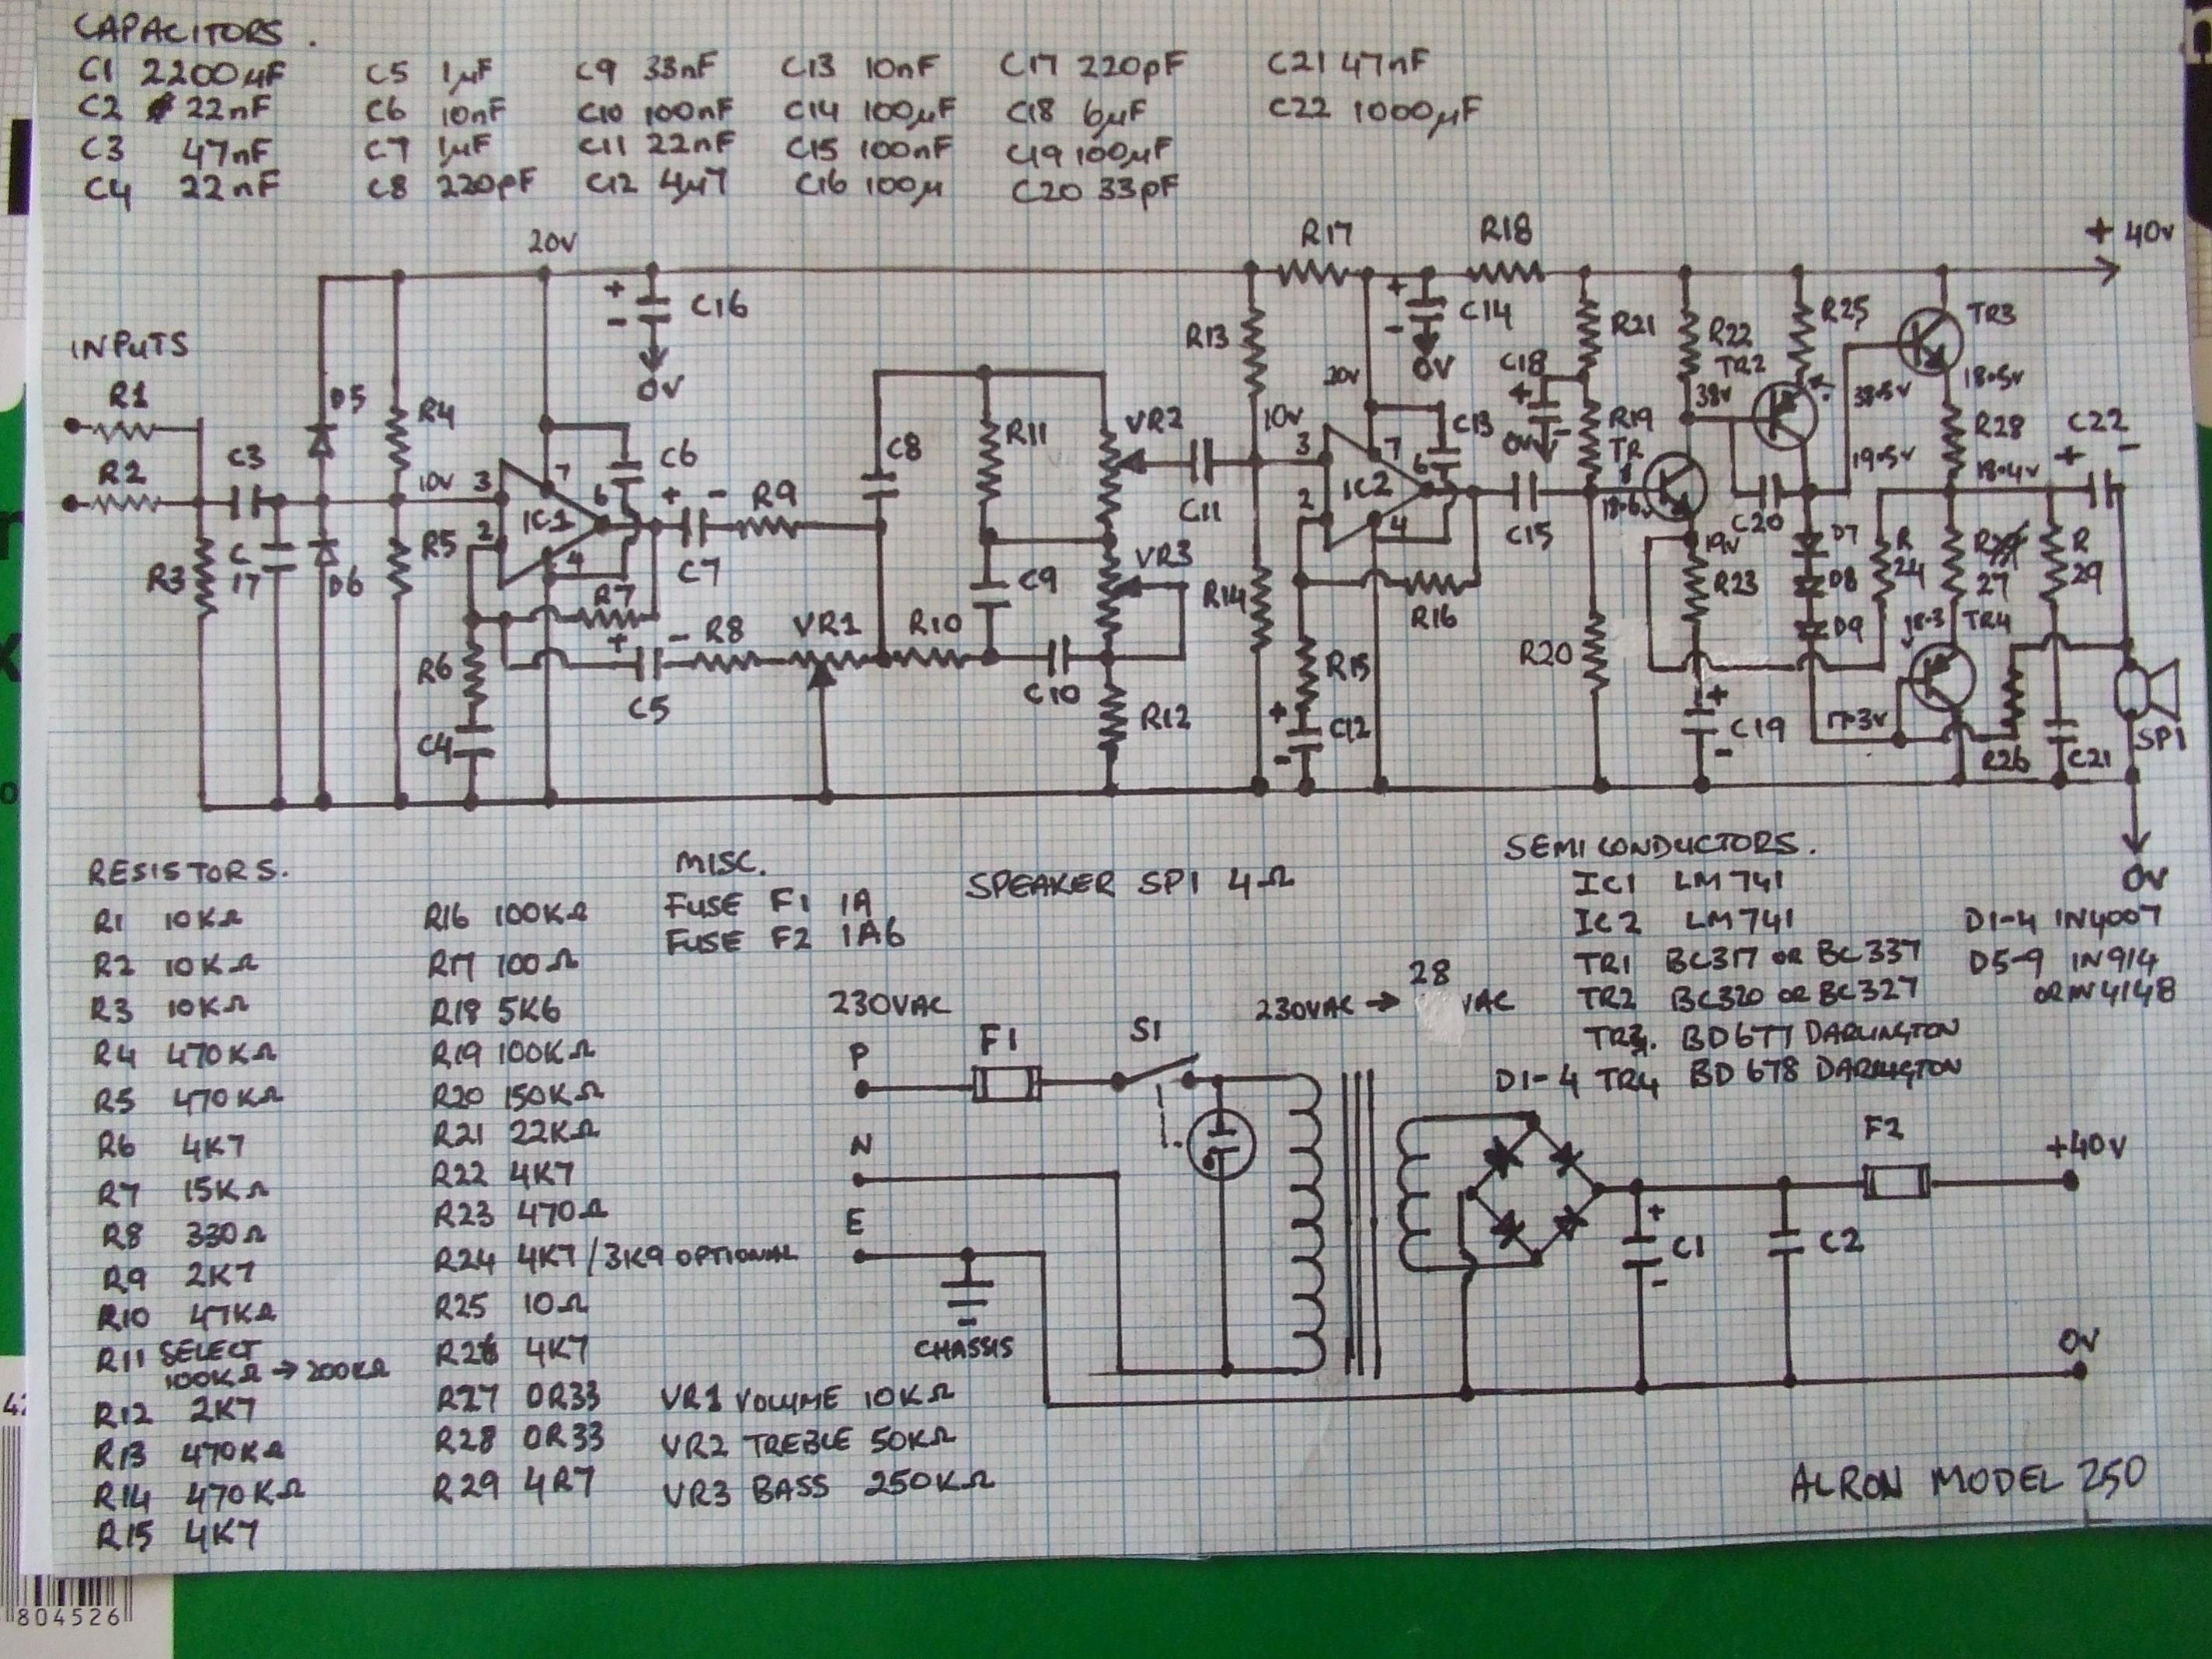 CAPACITORS.
C1 2200µF C5 1µF C9 33nF C13 10nF C17 220pF C21 47nF
C2 22nF C6 10nF C10 100nF C14 100µF C18 6µF C22 1000µF
C3 47nF C7 1µF C11 22nF C15 100nF C19 100µF
C4 22nF C8 220pF C12 4µ7 C16 100µ C20 33pF
20V R17 R18 + 40V
INPUTS
R1
R2
R3
C3
C
17
D5
D6
R4
R5
10V
3
2
7
6
4
IC1
+
-
C16
0V
C6
+ -
C7
R9
R7
R6
C4
+
-
C5
R8
VR1
R10
C8
R11
C9
C10
VR2
VR3
R12
C11
R13
R14
10V
20V
3
2
7
6
4
IC2
+
-
C14
0V
C13
C15
R16
R15
+
C12
-
C18
+
-
0V
R21
R19
TR
1
18.6V
R20
R22
TR2
38V
19V
R23
+
C19
-
R25
38.5V
19.5V
C20
D7
D8
D9
R
24
TR3
18.5V
R28
18.4V
R
27
18.3
TR4
17.3V
R26
R
29
C21
C22
+
-
SP1
0V
RESISTORS.
R1 10KΩ
R2 10KΩ
R3 10KΩ
R4 470KΩ
R5 470KΩ
R6 4K7
R7 15KΩ
R8 330Ω
R9 2K7
R10 47KΩ
R11 SELECT
100KΩ → 200KΩ
R12 2K7
R13 470KΩ
R14 470KΩ
R15 4K7
R16 100KΩ
R17 100Ω
R18 5K6
R19 100KΩ
R20 150KΩ
R21 22KΩ
R22 4K7
R23 470Ω
R24 4K7/3K9 OPTIONAL
R25 10Ω
R26 4K7
R27 0R33
R28 0R33
R29 4R7
MISC.
FUSE F1 1A
FUSE F2 1A6
SPEAKER SP1 4Ω
SEMICONDUCTORS.
IC1 LM741
IC2 LM741
TR1 BC317 OR BC337
TR2 BC320 OR BC327
TR3. BD677 DARLINGTON
TR4 BD678 DARLINGTON
D1-4 IN4007
D5-9 IN914
OR IN4148
230VAC
P
F1
S1
N
E
CHASSIS
28
230VAC → VAC
D1-4
+
C1
-
C2
F2
+40V
0V
VR1 VOLUME 10KΩ
VR2 TREBLE 50KΩ
VR3 BASS 250KΩ
ALRON MODEL 250
804526